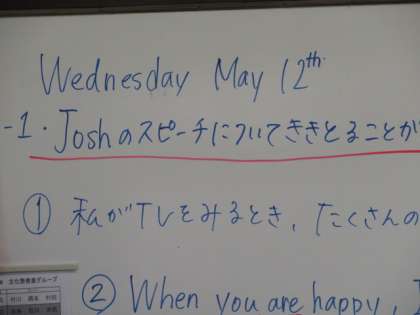 Wednesday May 12th
-1・Joshのスピーチについてききとることが
① 私がTVをみるとき、たくさんの
② When you are happy, I
文化祭発表グループ